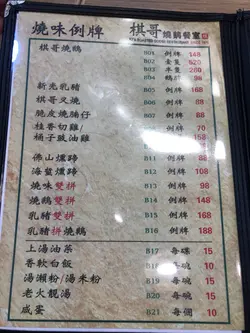 燒味例牌 棋哥燒鵝餐室
棋哥燒鵝 B01 例牌 148
B02 壹隻 520
B03 半隻 260
B04 鵝
新光乳豬 例牌 168
棋哥叉燒 例牌 88
脆皮燒腩仔 例牌 88
桂香切雞 例牌 70
桶子豉油雞 例牌
佛山燻蹄 B11 例牌 88
海蜇燻蹄 B12 例牌 108
燒味雙拼 B13 例牌 98
燒鵝雙拼 B14 例牌 148
乳豬雙拼 B15 例牌 168
乳豬拼燒鵝 B16 例牌 188
上湯油菜 B17 每碟 15
香軟白飯 B18 每碗 10
湯瀨粉/湯米粉 B19 每碗 15
老火靚湯 B20 每碗 15
咸蛋 B21 每個 10